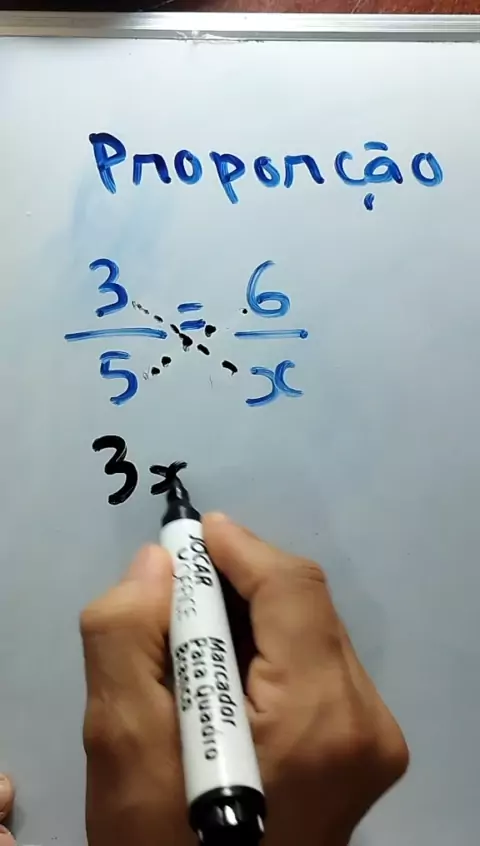 Proporção
3 = 6
5 x
3x
JOCAR
OFFICE
Marcador
Para Quadro
Branco